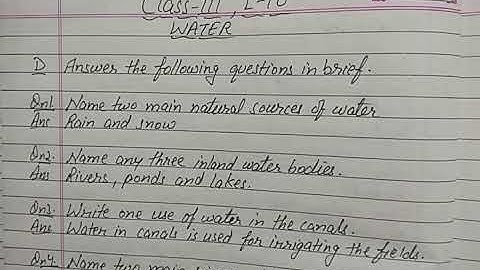 Class-III, L-10
WATER
D Answer the following questions in brief.
Qn1. Name two main natural sources of water
Ans Rain and snow
Qn2. Name any three inland water bodies.
Ans Rivers, ponds and lakes.
Qn3. Write one use of water in the canals.
Ans Water in canals is used for irrigating the fields.
Qn4. Name two main